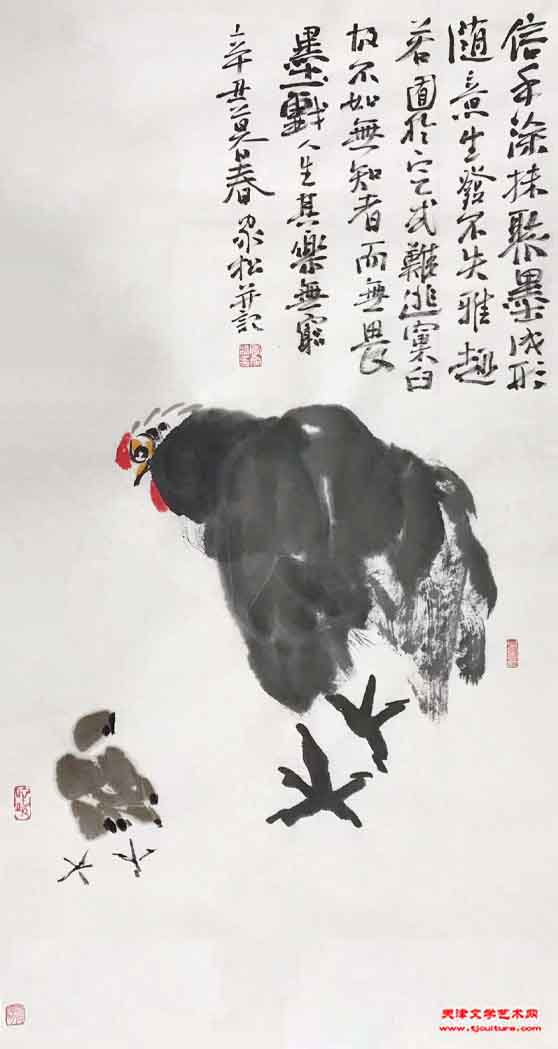 信手涂抹聚墨成形
随意生發不失雅趣
若囿於定式難逃窠臼
故不如無知者而無畏
墨戲人生其樂無窮
辛丑莫春 家松并記
天津文学艺术网
www.tjculture.com